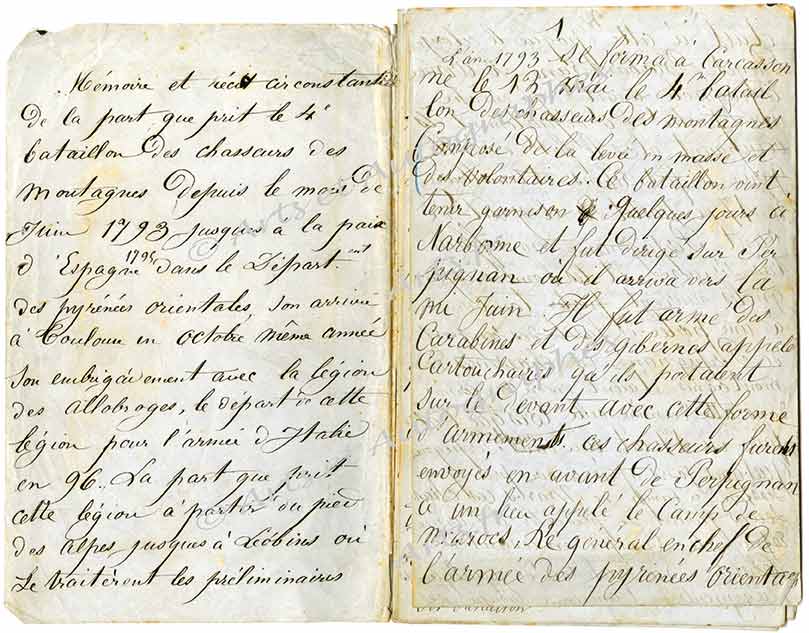 Mémoire et récit circonstantié
de la part que prit le 4e
bataillon des chasseurs des
montagnes depuis le mois de
Juin 1793 jusques a la paix
d'Espagne 1795 dans le Départ.ent
des pyrénées orientales, son arrivée
à Toulouse en octobre même année
son embrigadement avec la légion
des allobroges, le départ de cette
légion pour l'armée d'Italie
en 96. La part que prit
cette légion à partir du pied
des alpes jusques à Léobins où
se traitèrent les préliminaires
1
L'an 1793 se forma à Carcasson
ne le 12 mai le 4e batail
lon des chasseurs des montagnes
Composé de la levée en masse et
des volontaires. Ce bataillon vint
tenir garnison quelques jours à
Narbonne et fut dirigé sur Per
pignan où il arriva vers la
mi Juin Il fut armé des
Carabines et des gibernes appelé
Cartouchaires qu'ils portaient
sur le devant avec cette forme
d'armements, ces chasseurs furent
envoyés en avant de Perpignan
a un lieu appelé le Camp de
. Le général en chef de
l'armée des pyrénées orienta
© Arts et Autographes